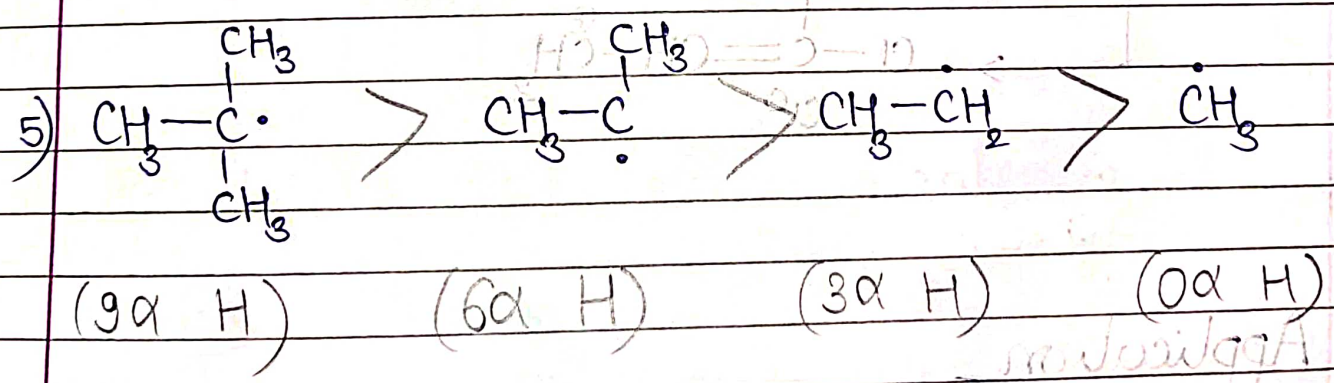 CH3 CH3
5) CH3—C• > CH3—C• > CH3—CH2• > •CH3
CH3
(9α H) (6α H) (3α H) (0α H)